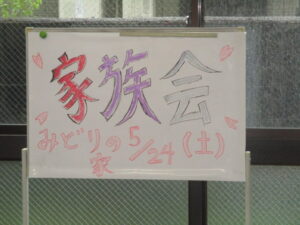 家族会
みどりの家 5/24(土)